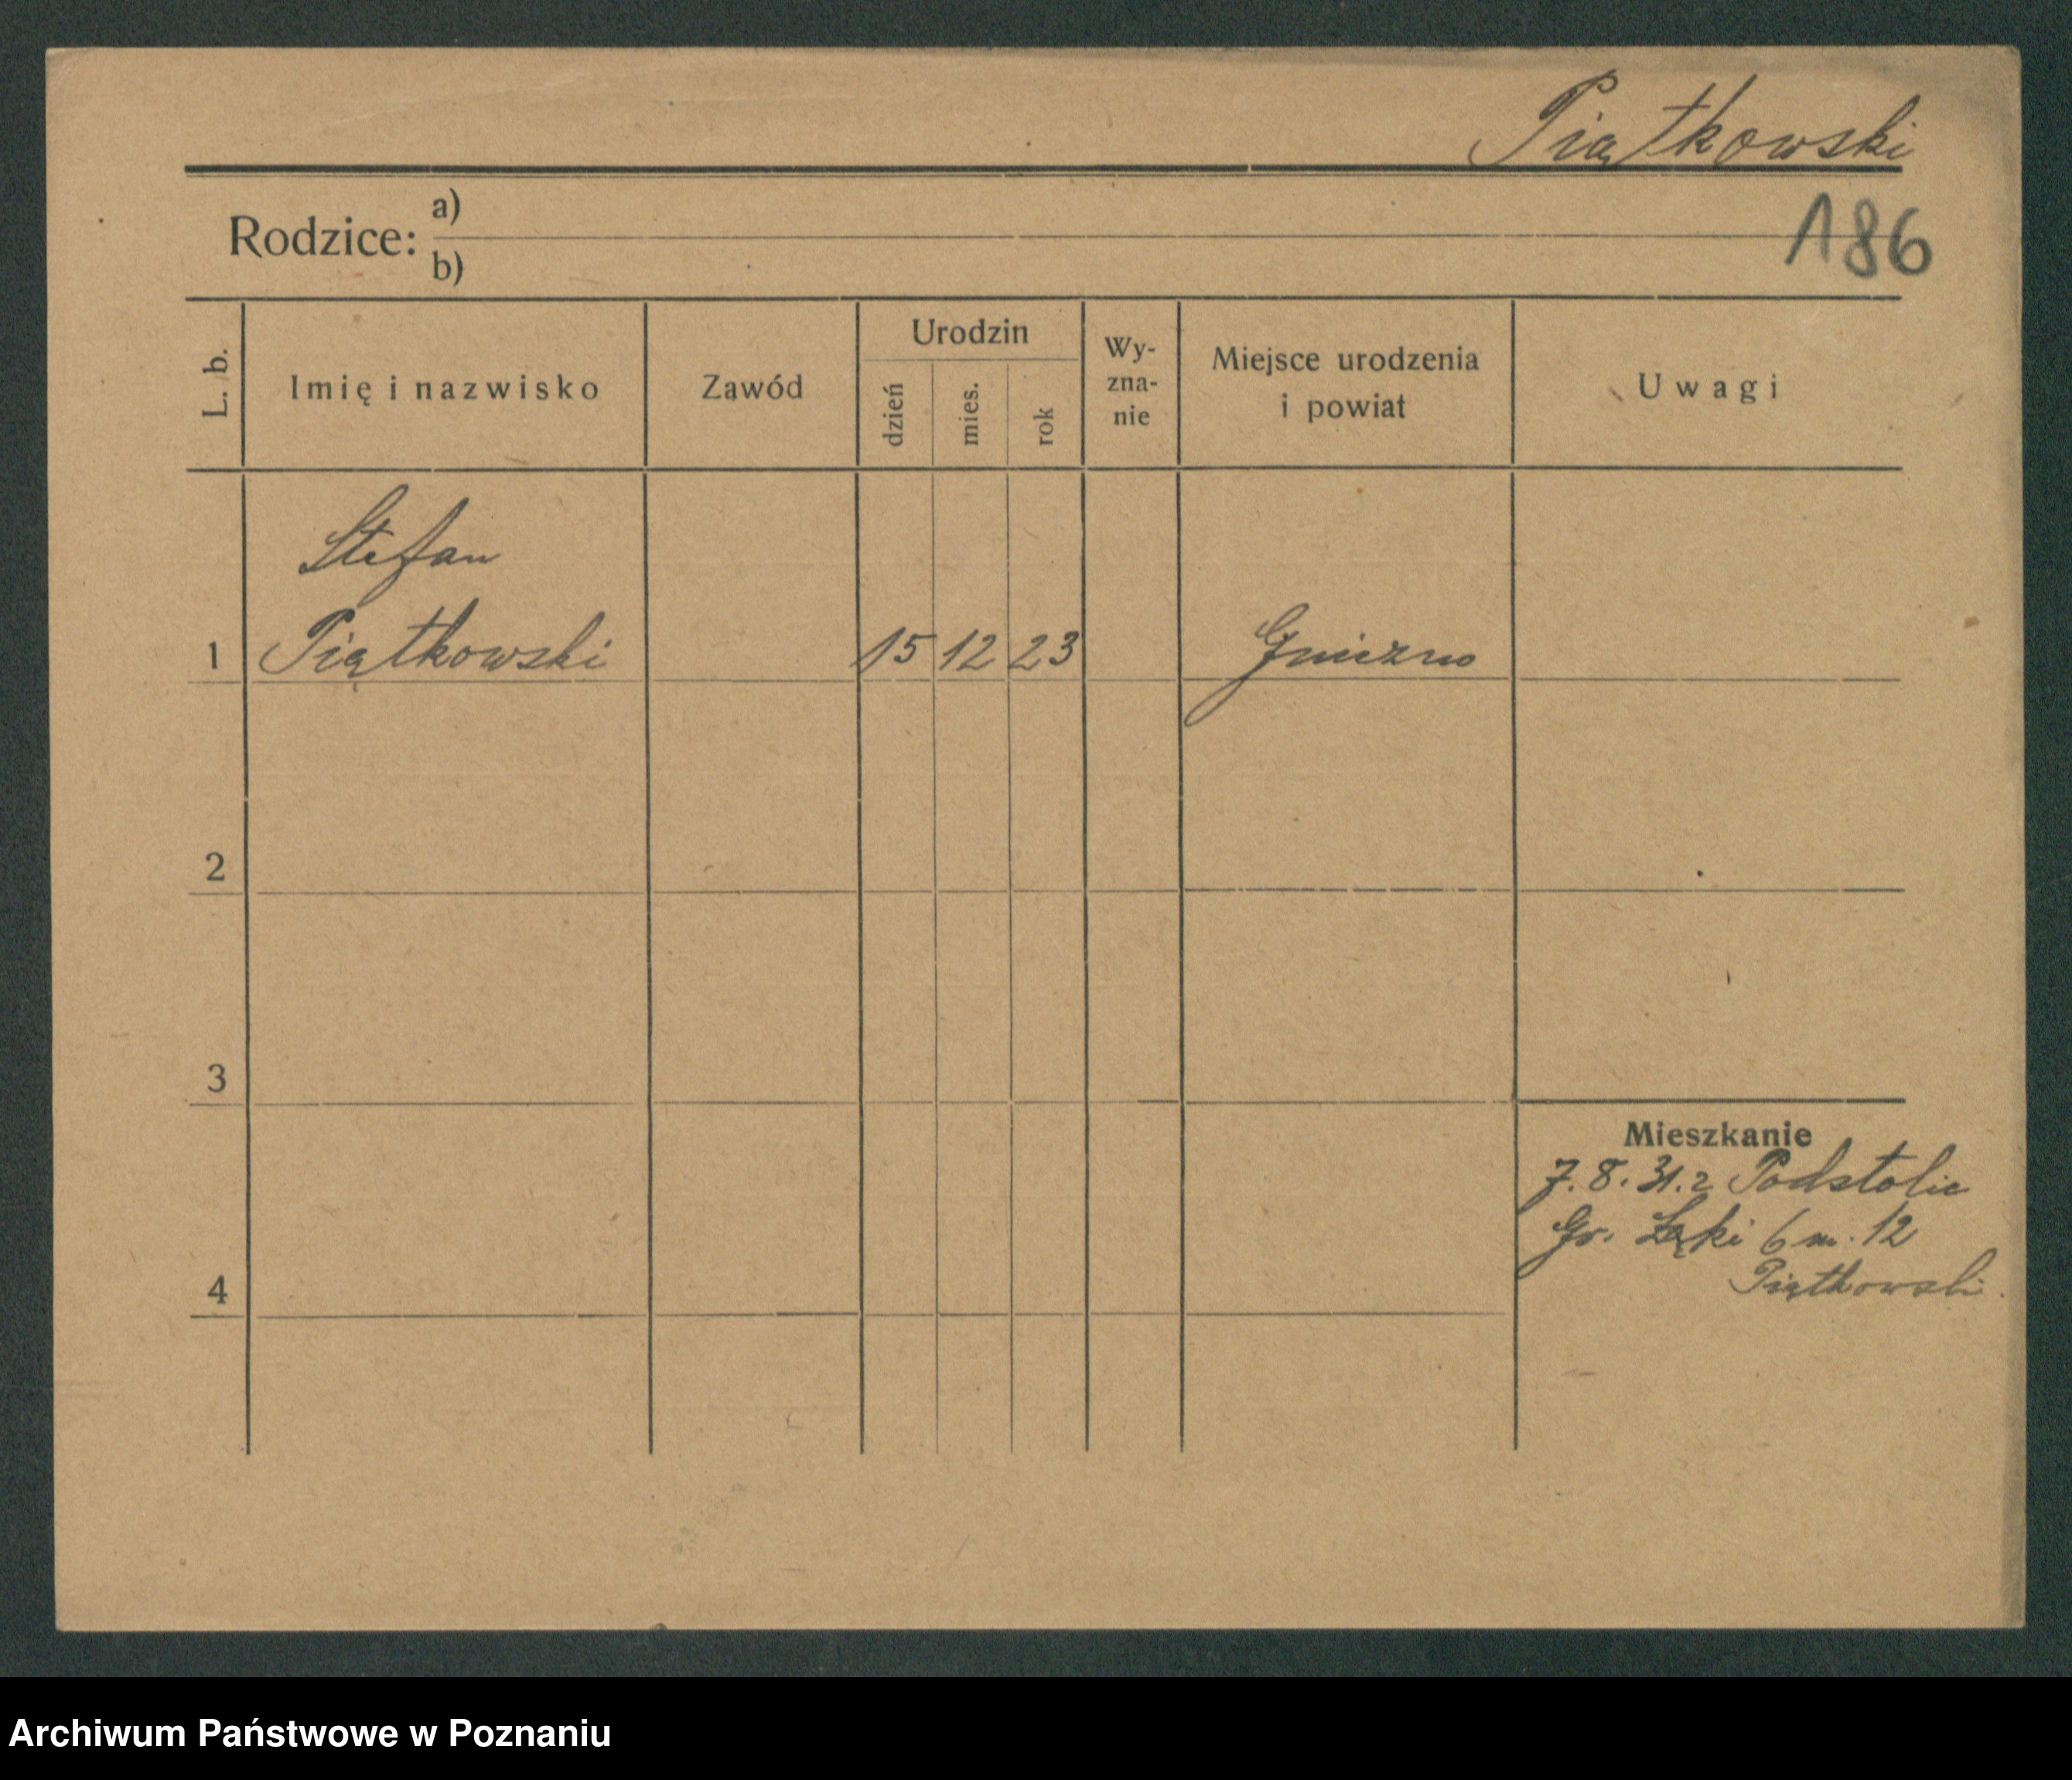 Piątkowski
186
Rodzice: a)
b)
L. b. Imię i nazwisko Zawód Urodzin dzień mies. rok Wy-zna-nie Miejsce urodzenia i powiat Uwagi
Stefan
1 Piątkowski 15 12 23 Gniezno
2
3
Mieszkanie
7.8.31. z Podstolic
Gr. Łąki 6 m. 12
Piątkowski
4
Archiwum Państwowe w Poznaniu